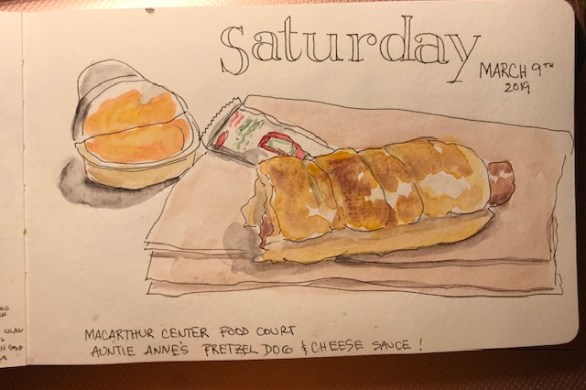 Saturday
MARCH 9TH
2019
MACARTHUR CENTER FOOD COURT
AUNTIE ANNE'S PRETZEL DOG & CHEESE SAUCE!